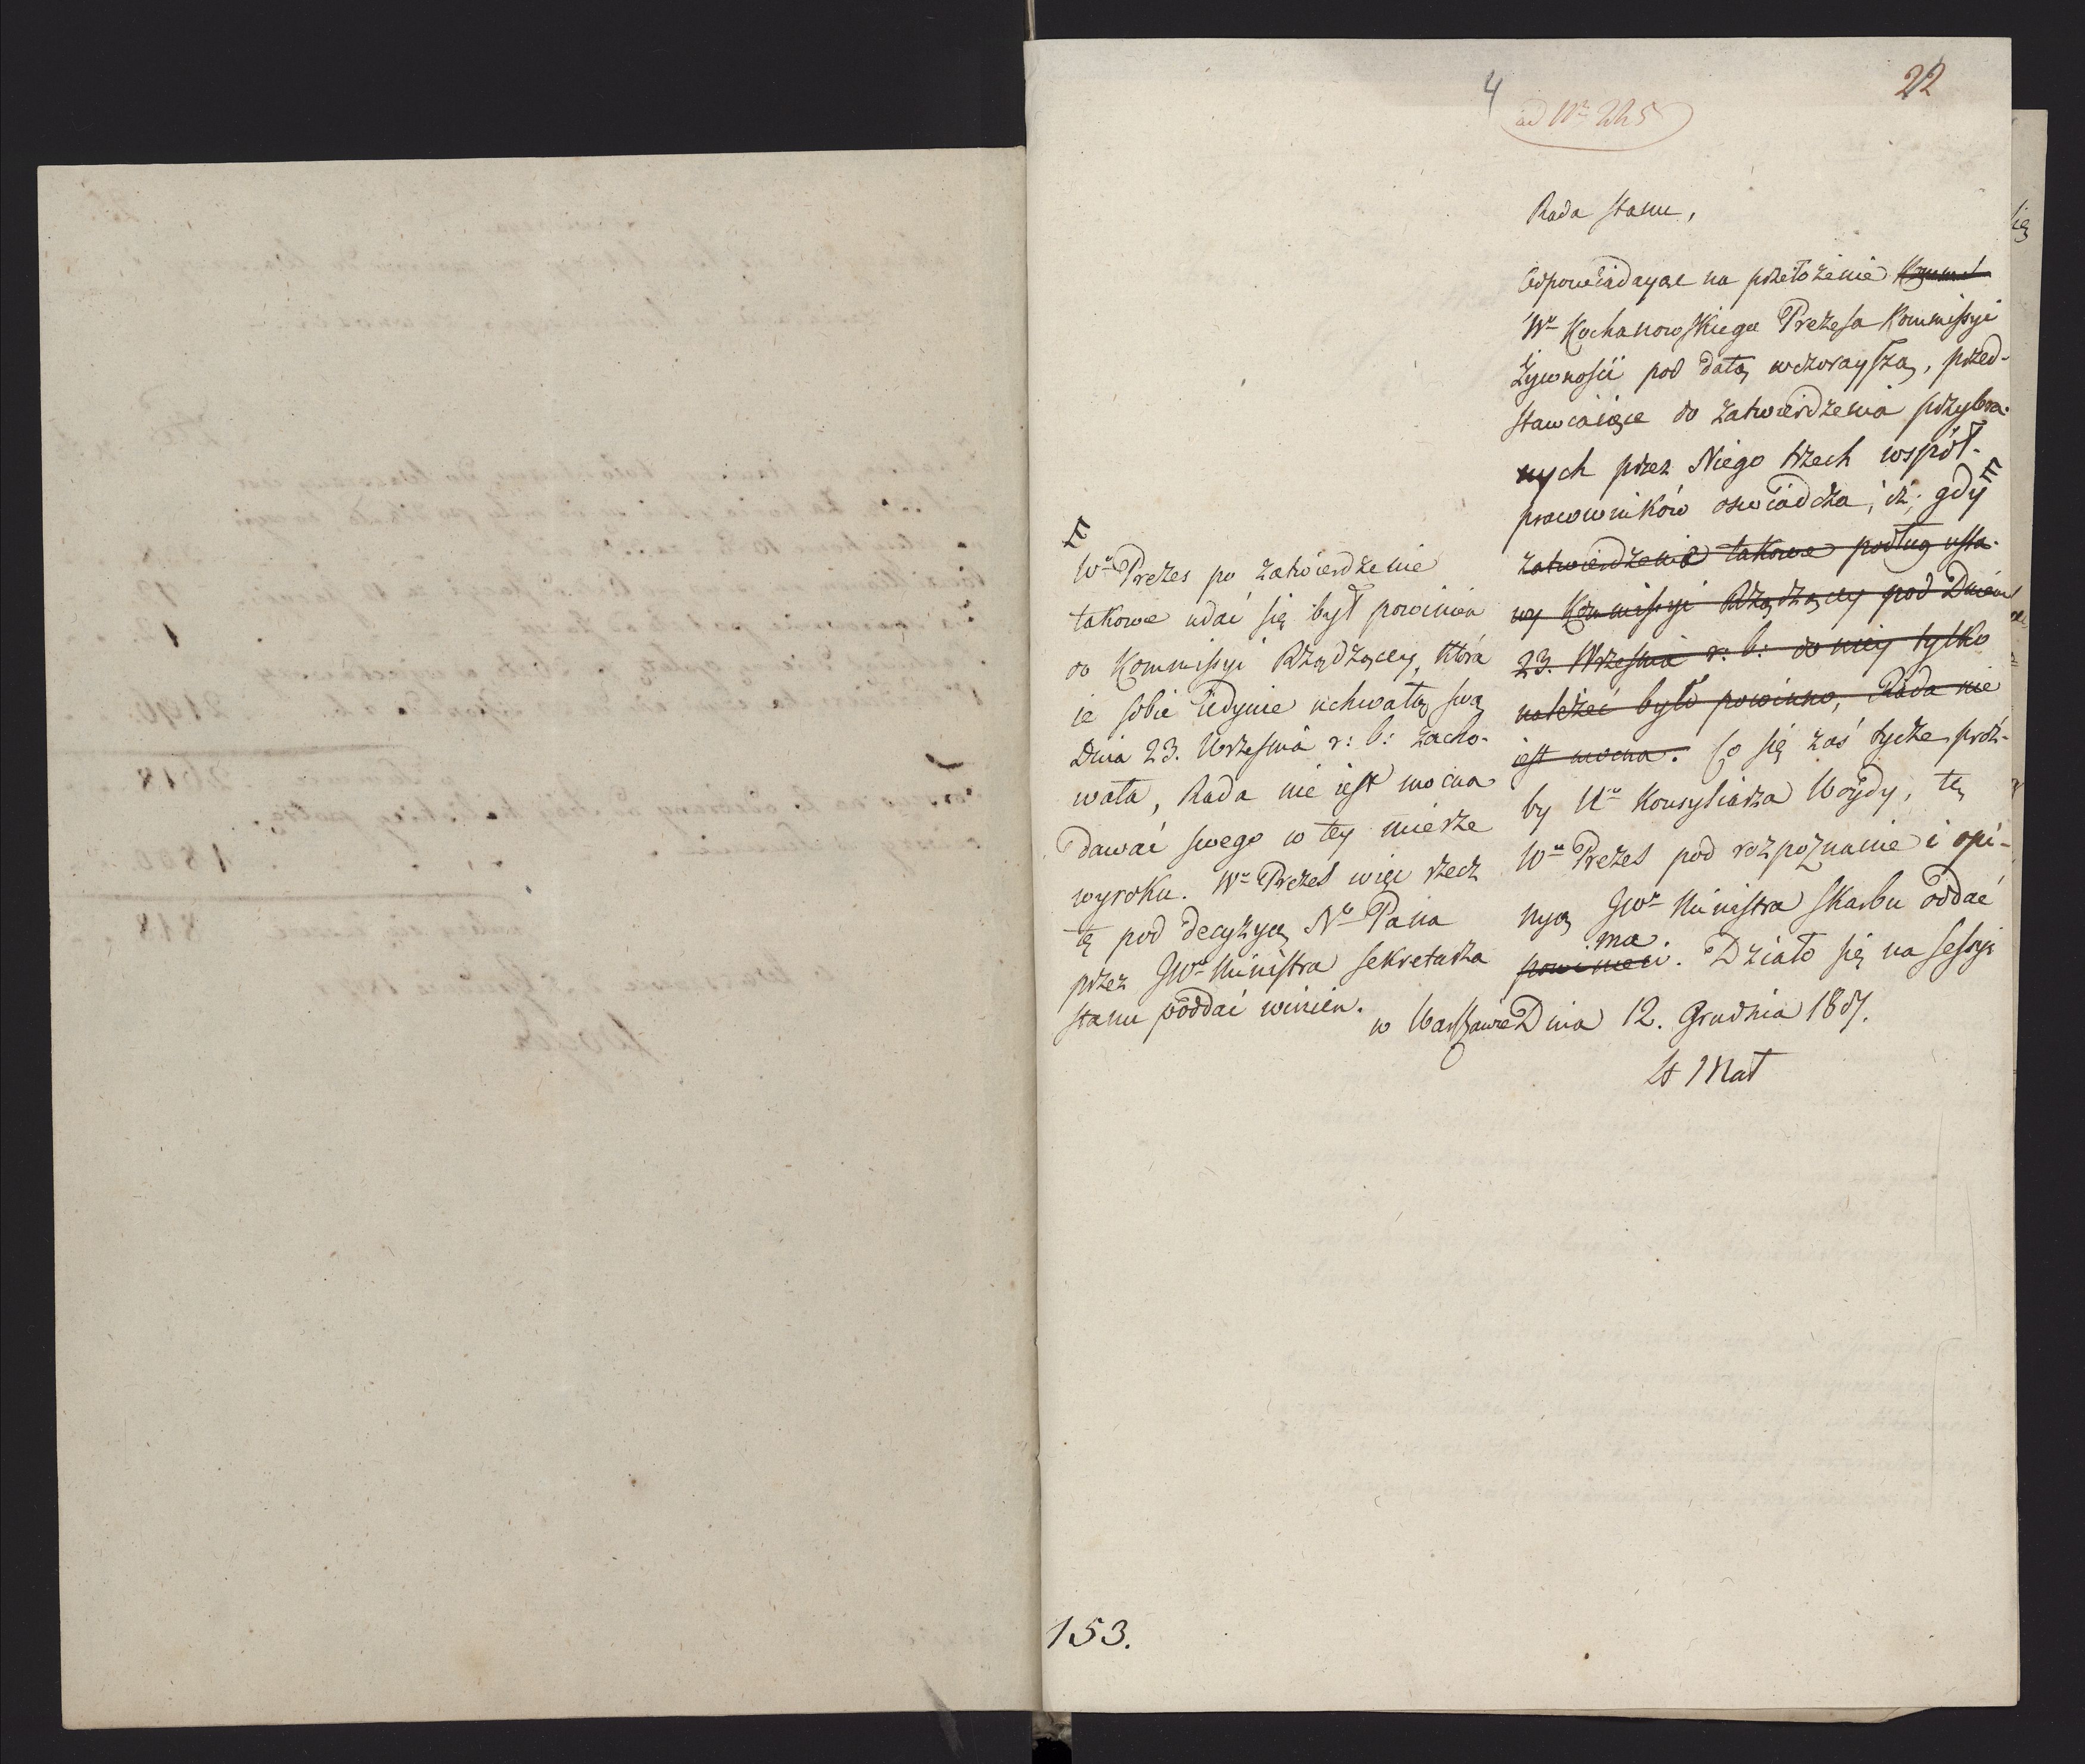 4
22
ad Nr 225
Rada Stanu,
Odpowiadaiąc na przełożenie
Wo Kochanowskiego Prezesa Kommissyi
Żywności pod datą wczorayszą, przed-
stawiaiące do zatwierdzenia przybra-
nych przez Niego trzech wspòł-
pracowników oświadcza, iż; gdy
zatwierdzenie takowe podług usta-
wy Kommissyi Rządzącey pod Dniem
23. Września r: b: do niey tylko
należeć było powinno, Rada nie
iest mocna. Co się zaś tycze proź-
by Uo Konsyliarza Woydy, tę
Wny Prezes pod rozpoznanie i opi-
nyą JWo Ministra Skarbu oddać
ma.
powinien. Działo się na Sessyi
w Warszawie Dnia 12. Grudnia 1807.
St Mał
Wny Prezes po zatwierdzenie
takowe udać się był powinien
do Kommissyi Rządzącey, która
ie sobie iedynie uchwałą swą
Dnia 23. Września r: b: zacho-
wała, Rada nie iest mocna
dawać swego w tey mierze
wyroku. Wny Prezes więc rzecz
tę pod decyzyą No Pana
przez JWo Ministra Sekretarza
Stanu poddać winien.
153.